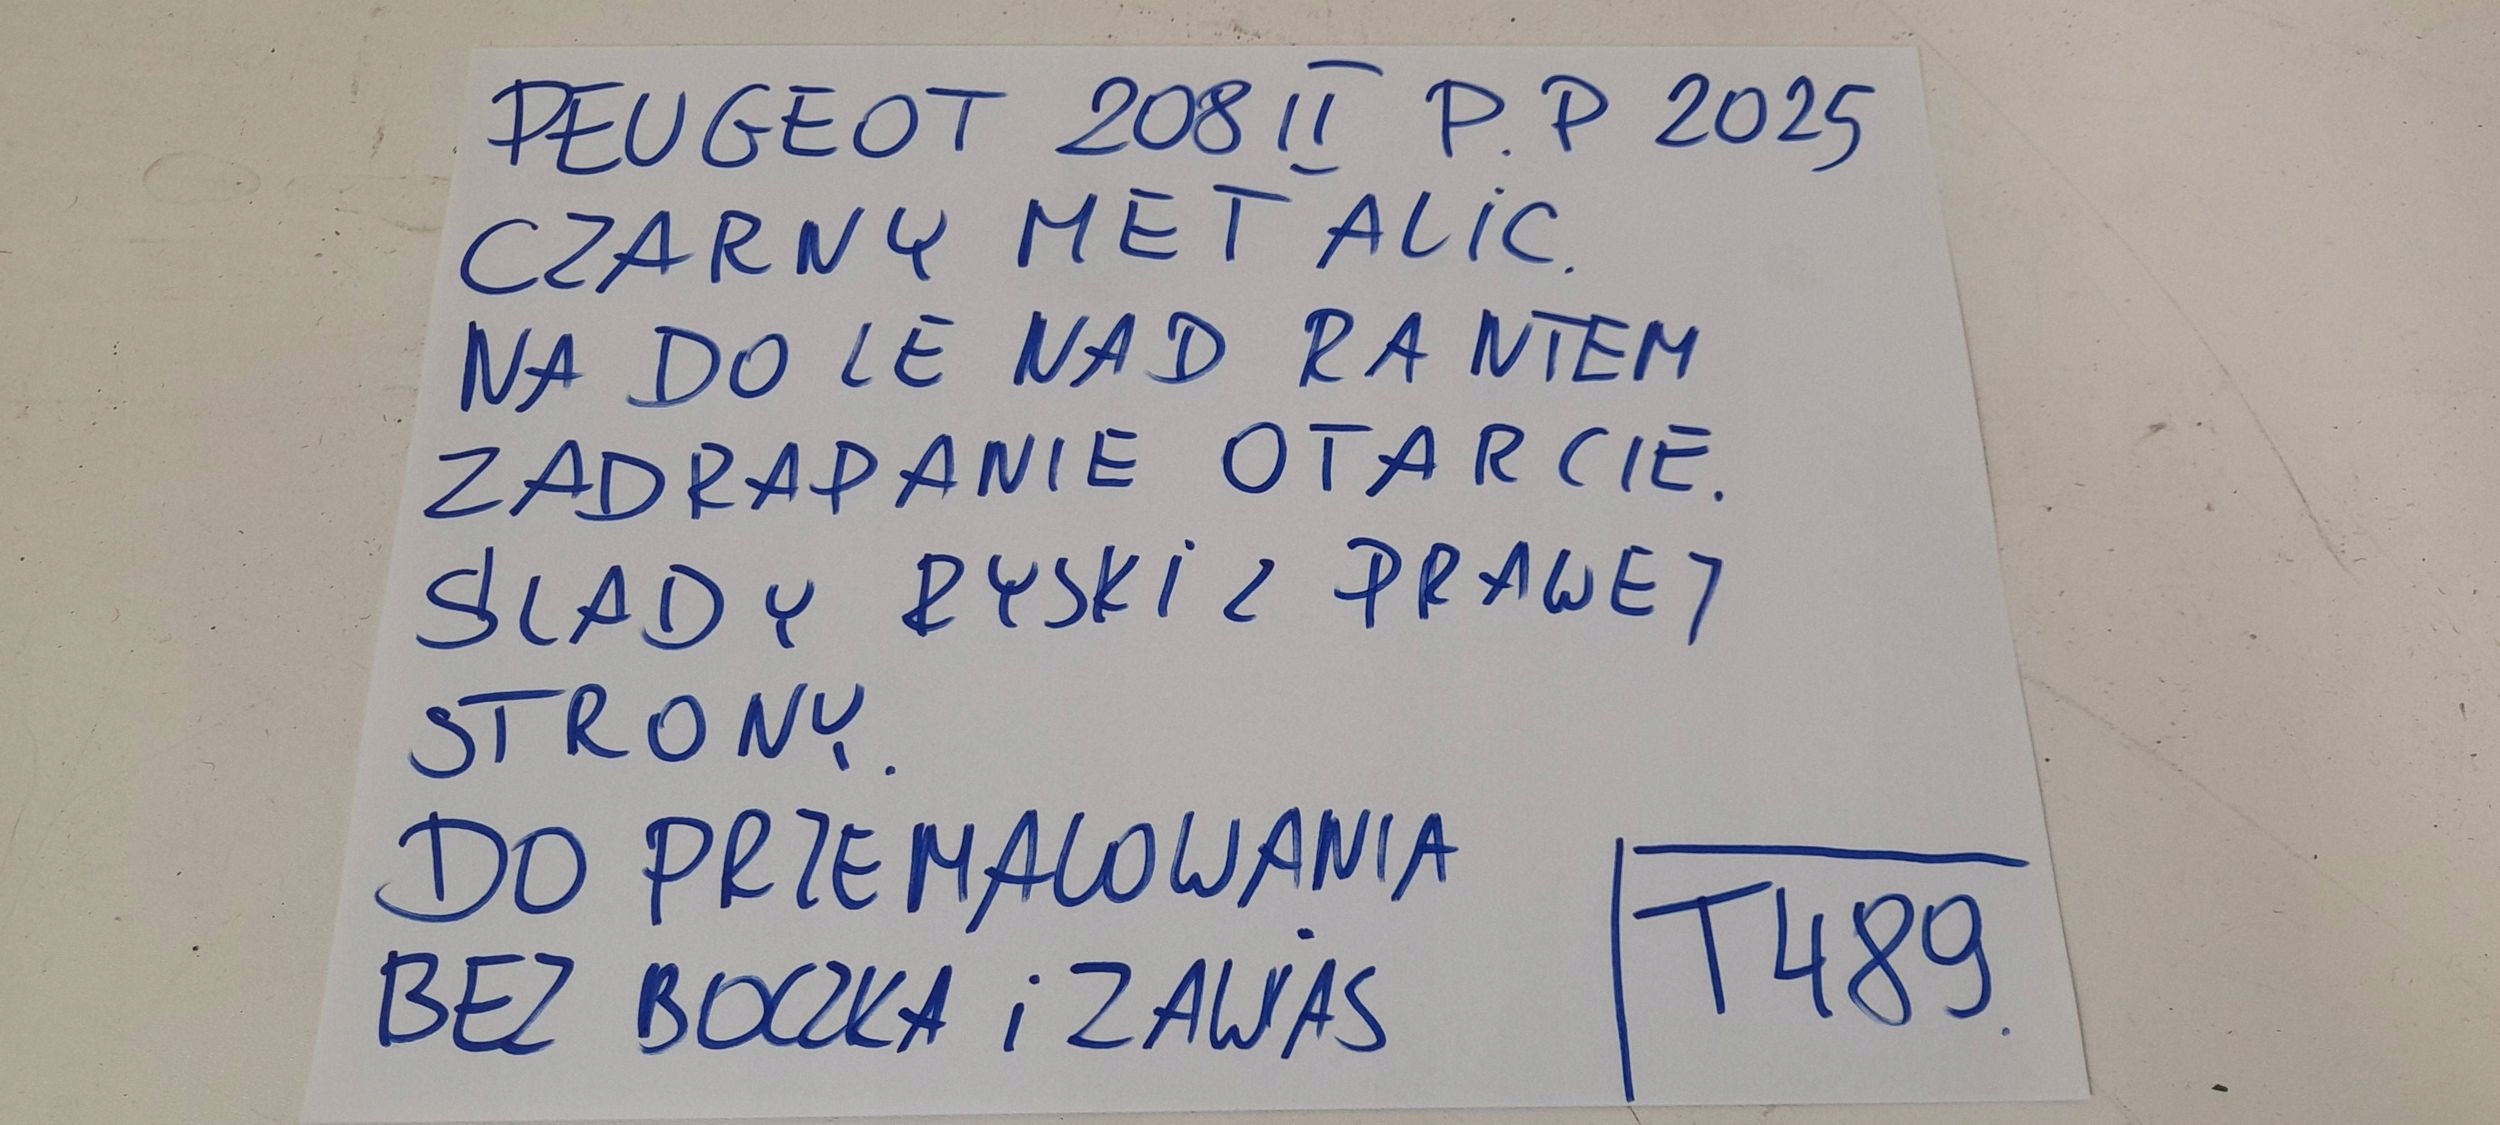 PEUGEOT 208 II P.P 2025
CZARNY METALIC.
NA DOLE NAD RANTEM
ZADRAPANIE OTARCIE.
ŚLADY RYSKI Z PRAWEJ
STRONY.
DO PRZEMALOWANIA
BEZ BOCZKA i ZAWIAS
T489.